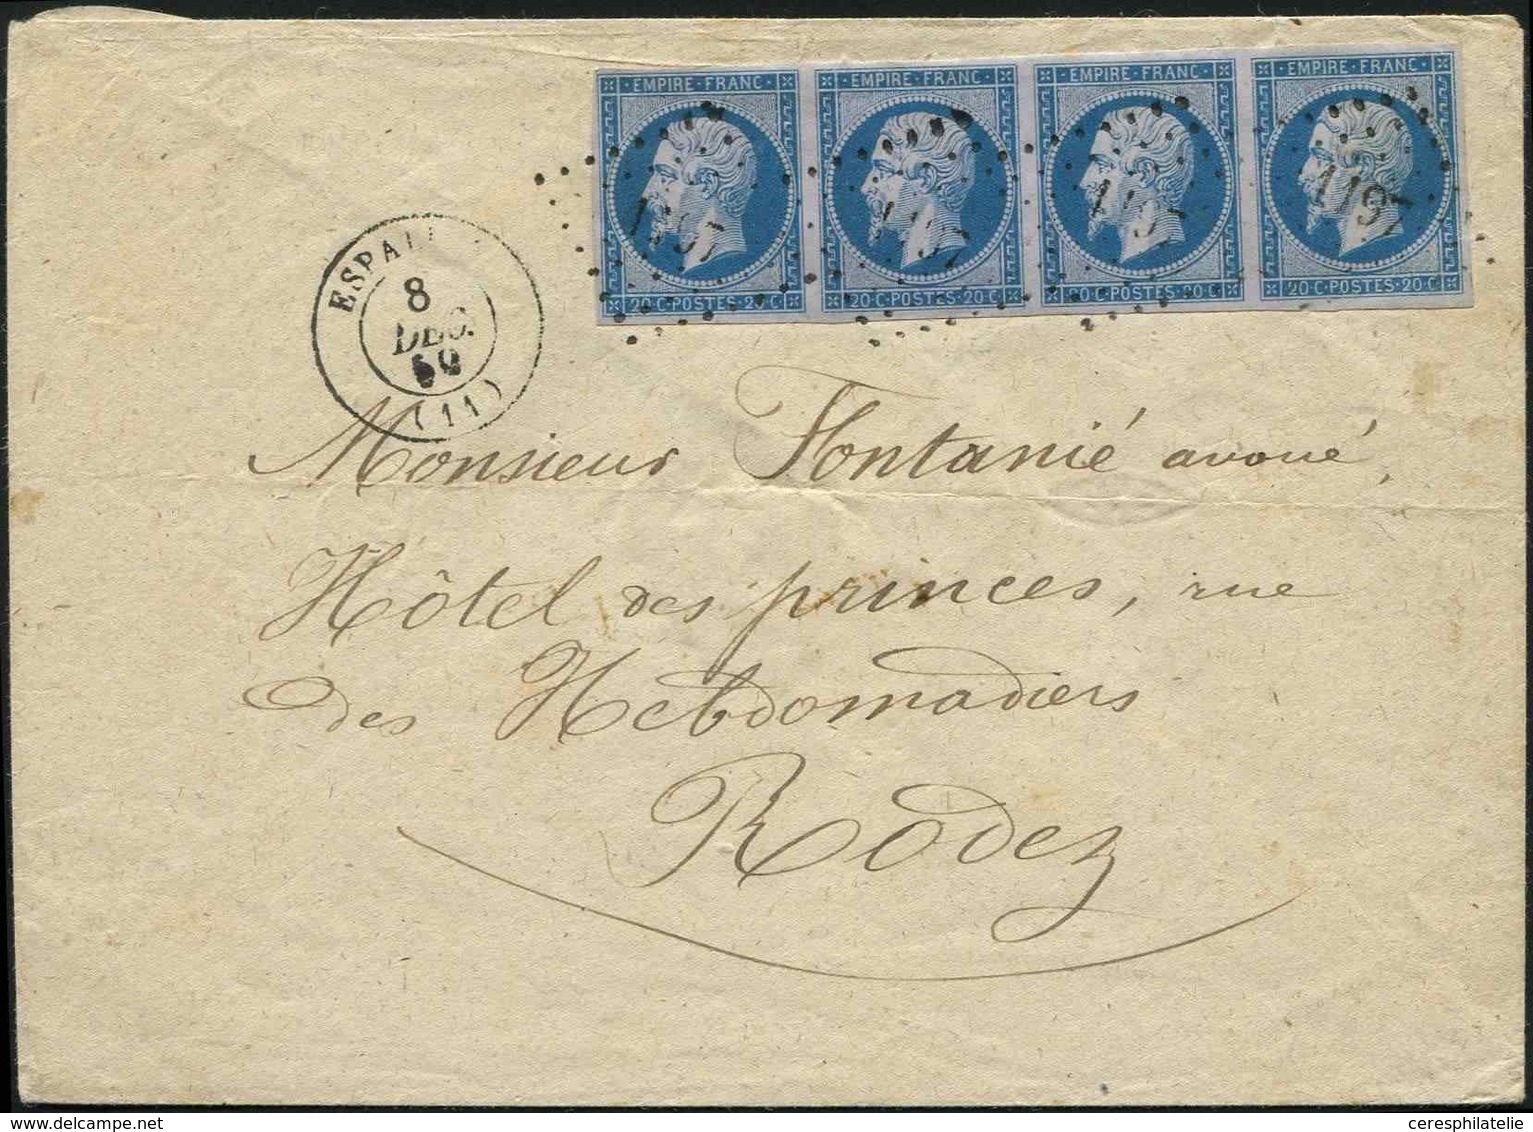 EMPIRE·FRANC· EMPIRE·FRANC· EMPIRE·FRANC· EMPIRE·FRANC·
1197 1197 1197 1197
20·C·POSTES·20·C· 20·C·POSTES·20·C· 20·C·POSTES·20·C· 20·C·POSTES·20·C·
8
DEC.
59
(11)
Monsieur Fontanié avoué,
Hôtel des princes, rue
des Hebdomadiers
Rodez
ceresphilatelie